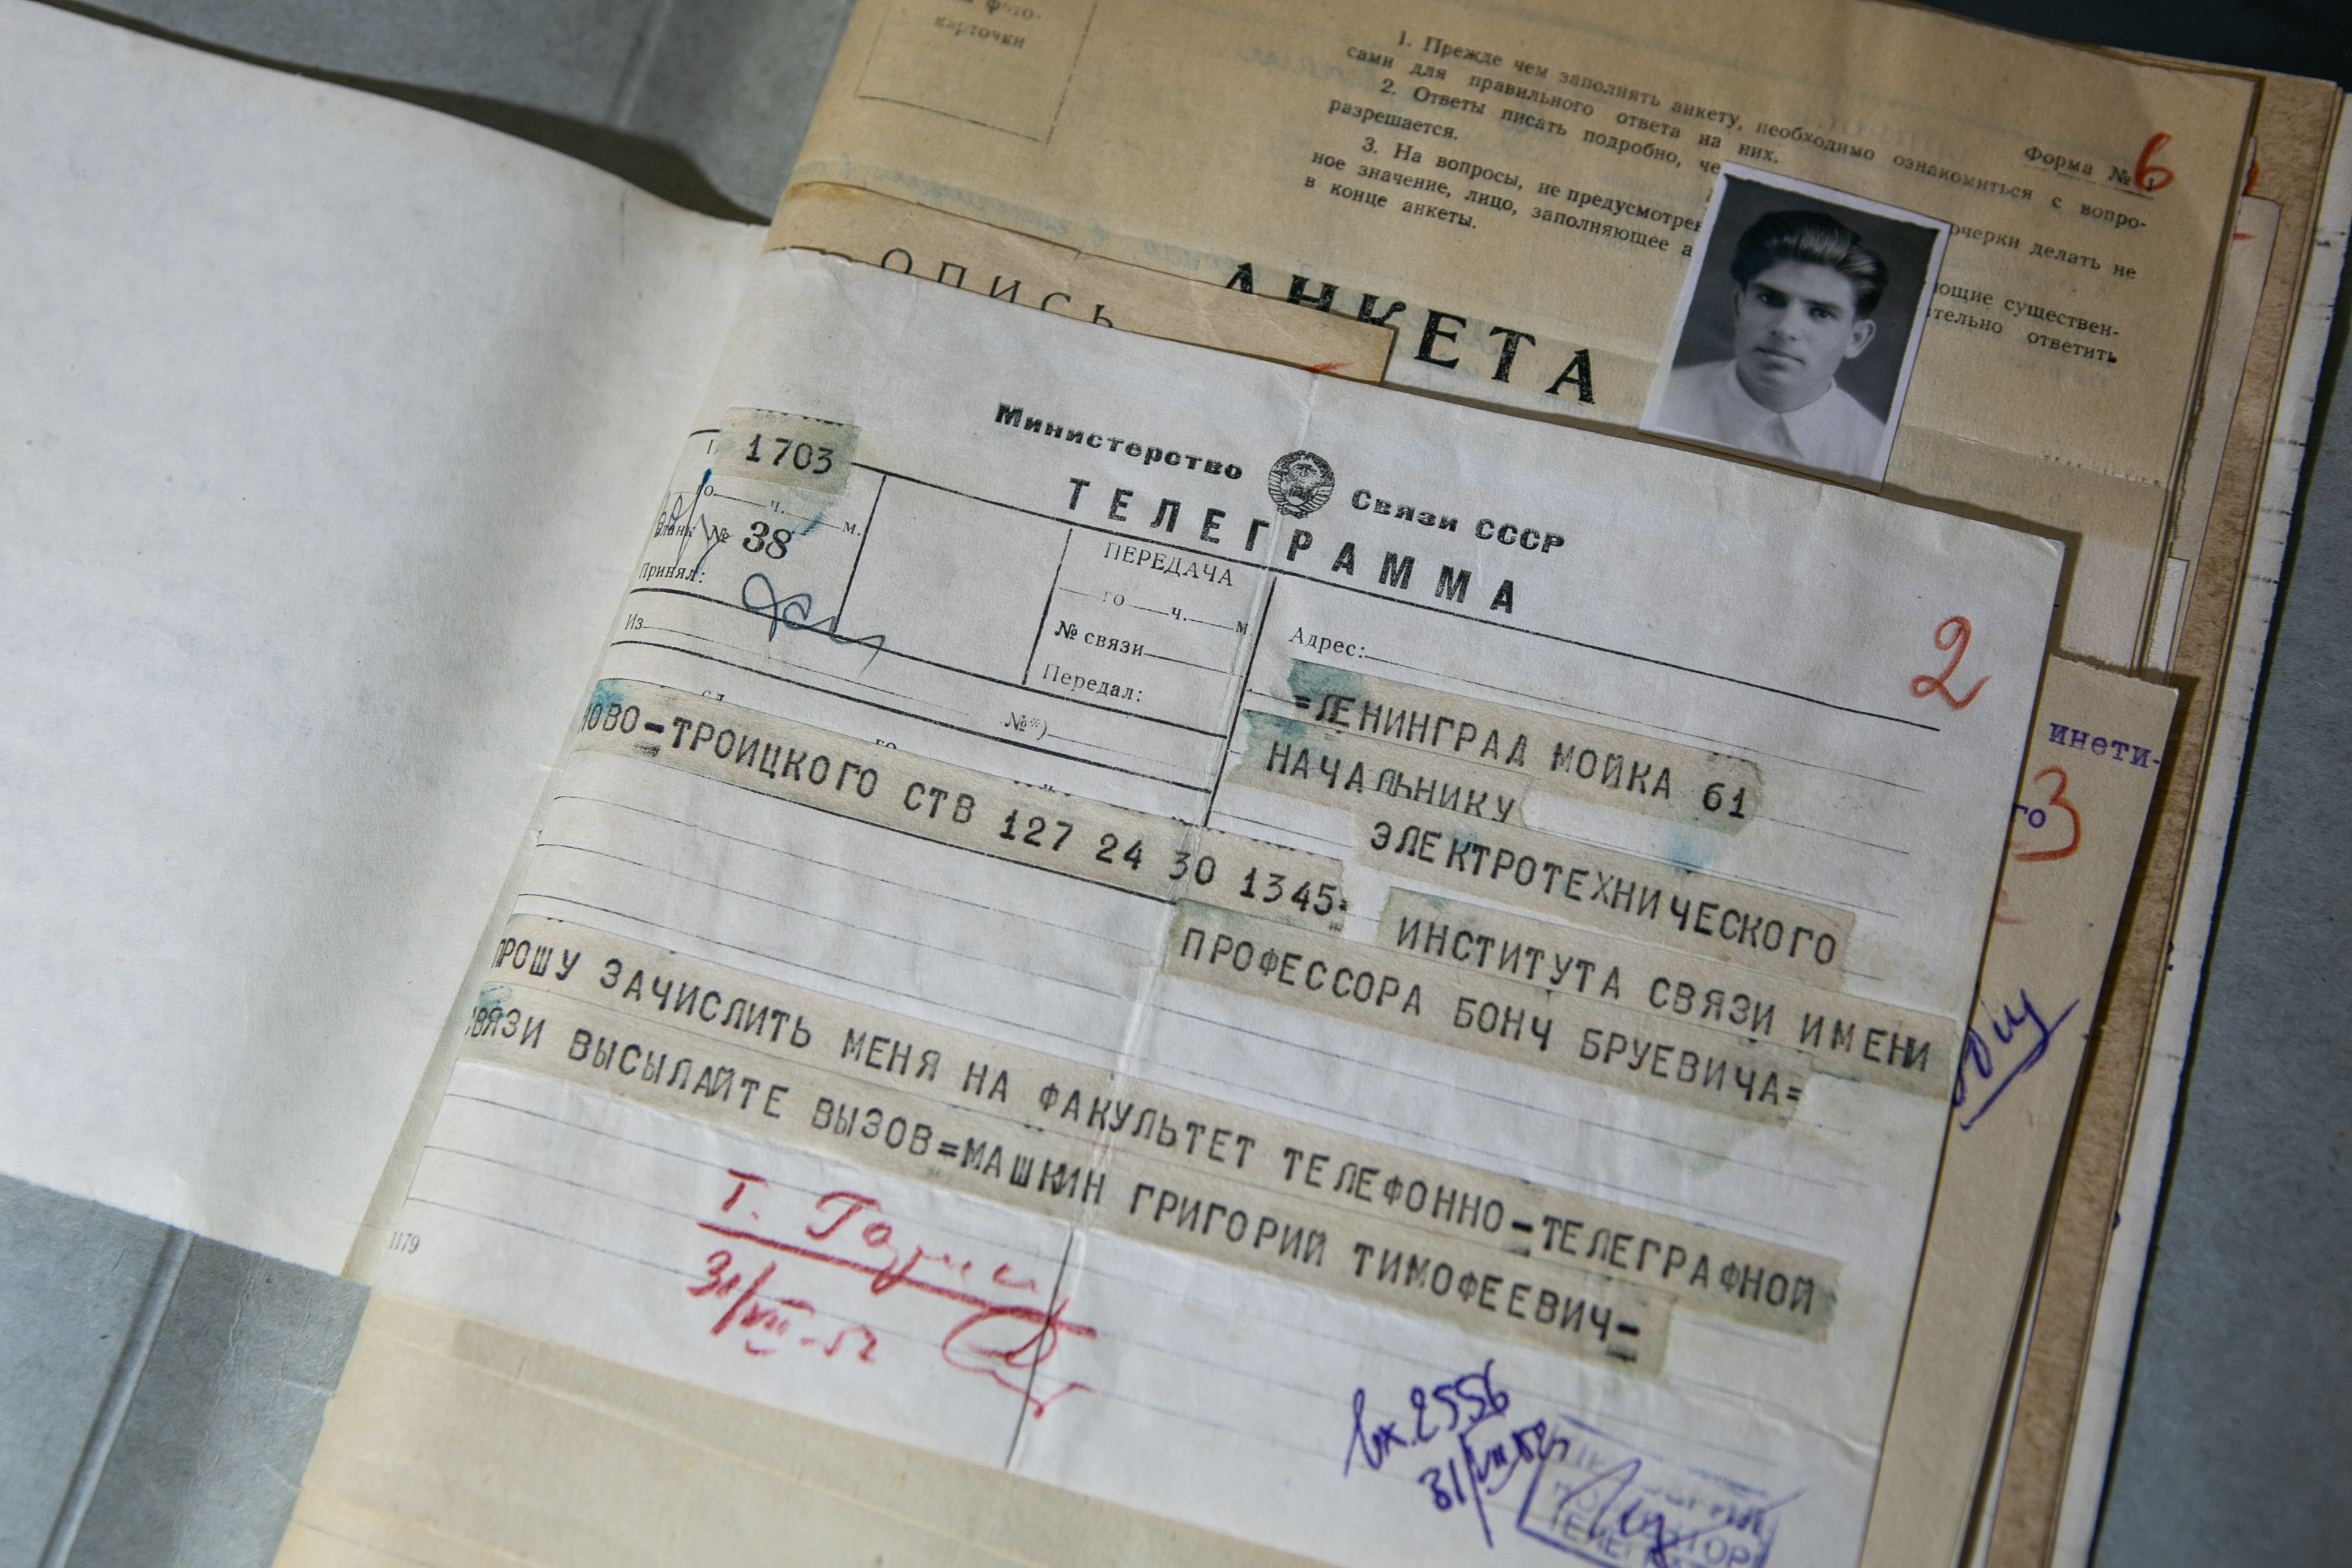 фото-
карточки
1. Прежде чем заполнять анкету, необходимо ознакомиться с вопро-
сами для правильного ответа на них.
2. Ответы писать подробно, че очерки делать не
разрешается.
3. На вопросы, не предусмотрен ющие существен-
ное значение, лицо, заполняющее а тельно ответить
в конце анкеты.
Форма № 1
6
АНКЕТА
ОПИСЬ
Министерство Связи СССР
ТЕЛЕГРАММА
2
1703
го ч. м.
Бланк № 38
Принял:
Из
ПЕРЕДАЧА
го ч. м.
№ связи
Передал:
Адрес:
сл. №*)
го
НОВО-ТРОИЦКОГО СТВ 127 24 30 1345=
=ЛЕНИНГРАД МОЙКА 61
НАЧАЛЬНИКУ
ЭЛЕКТРОТЕХНИЧЕСКОГО
ИНСТИТУТА СВЯЗИ ИМЕНИ
ПРОФЕССОРА БОНЧ БРУЕВИЧА=
ПРОШУ ЗАЧИСЛИТЬ МЕНЯ НА ФАКУЛЬТЕТ ТЕЛЕФОННО-ТЕЛЕГРАФНОЙ
СВЯЗИ ВЫСЫЛАЙТЕ ВЫЗОВ=МАШКИН ГРИГОРИЙ ТИМОФЕЕВИЧ-
31/VII-52
1179
вх. 2556
31/VII 52
инсти-
го
3